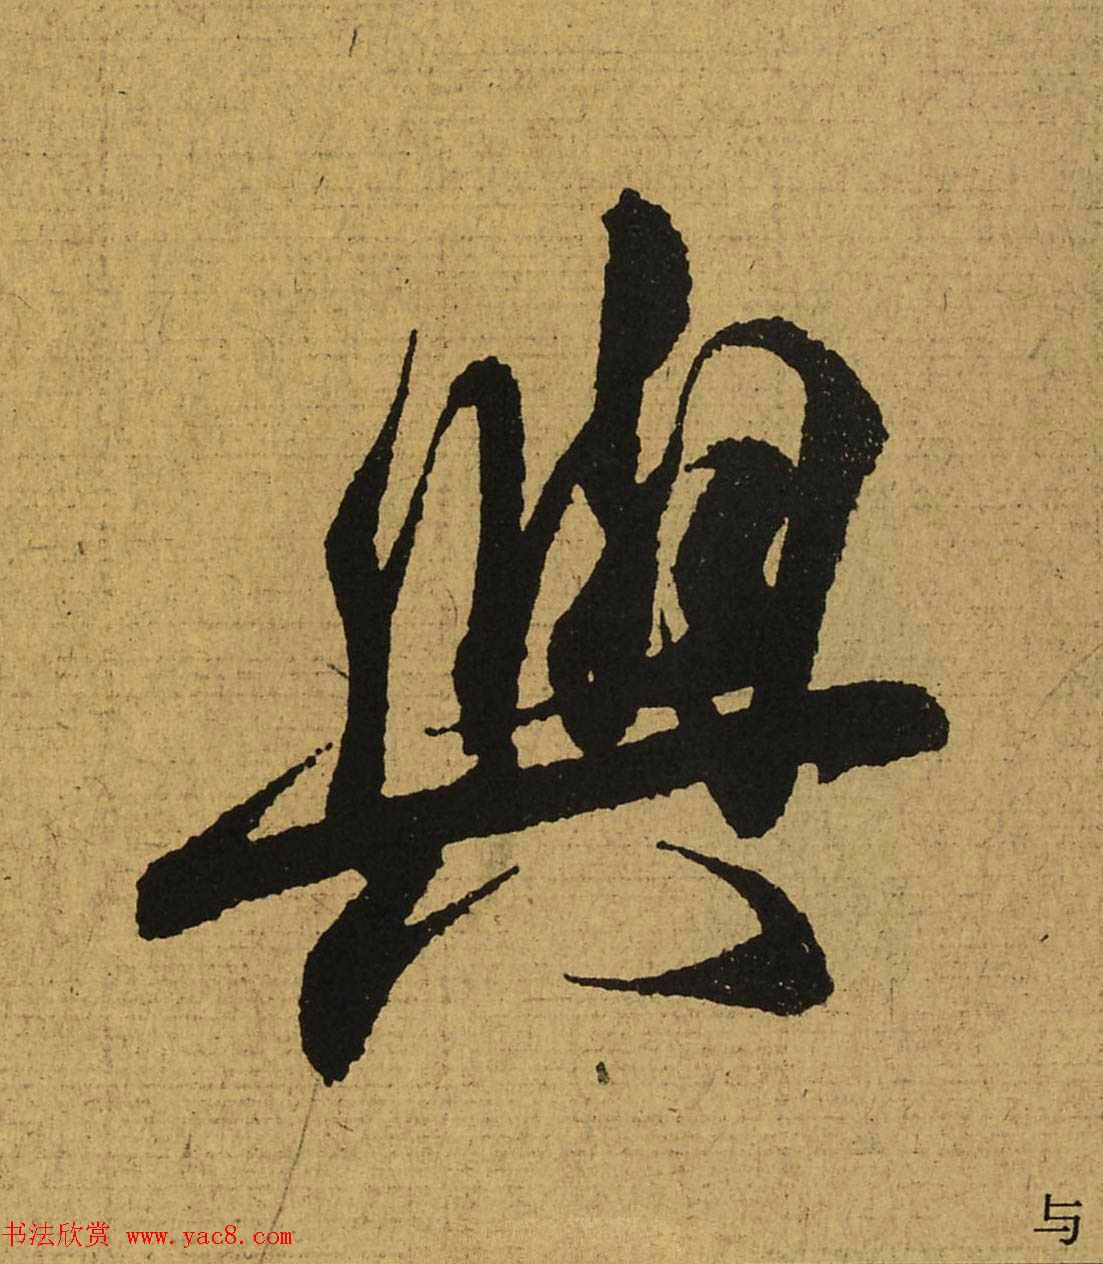 與
与
书法欣赏 www.yac8.com